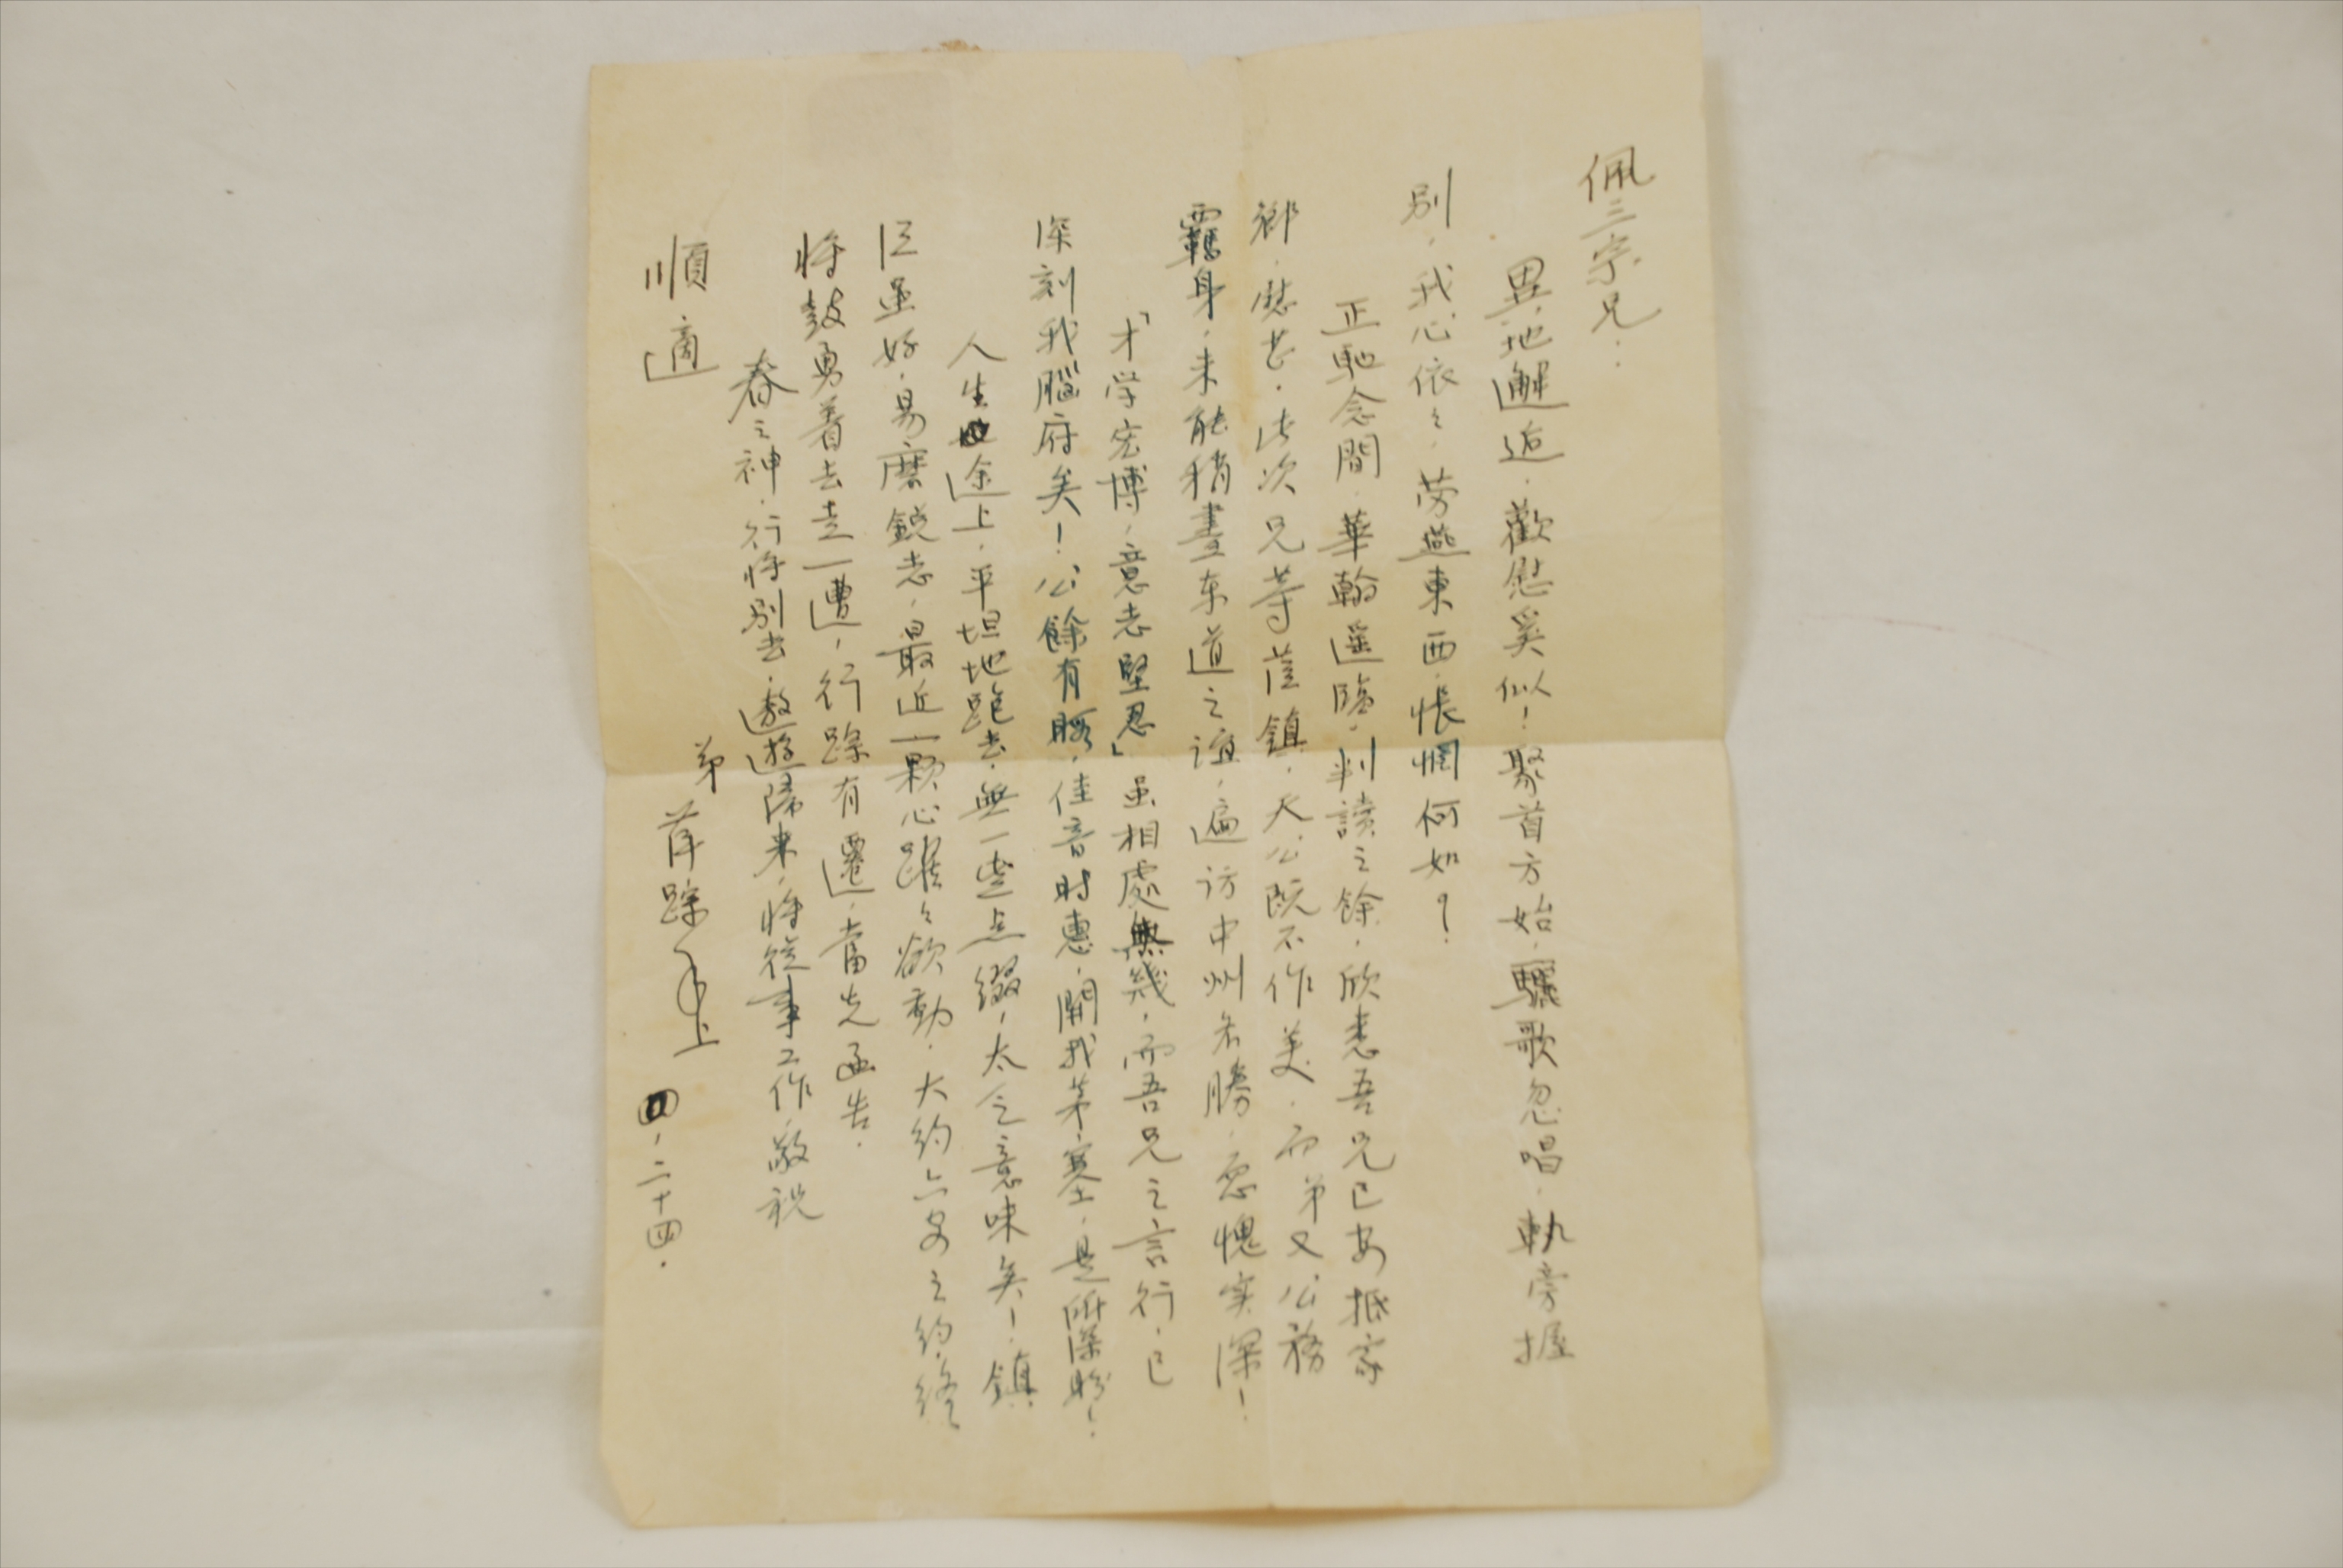 佩三宗兄：
異地邂逅，歡慰奚似！聚首方始，驪歌忽唱，執旁握
別，我心依々，劳燕東西，悵惘何如？
正馳念間，華翰遥臨，判讀之餘，欣悉吾兄已安抵家
鄉，慰甚。此次兄等蒞鎮，天公既不作美，而弟又公務
羈身，未能稍盡东道之谊，遍访中州名勝，愈愧实深！
「才学宏博，意志堅忍」虽相處無幾，而吾兄之言行，已
深刻我腦府矣！公餘有暇，佳音时惠，開我茅塞，是所深盼！
人生途上，平坦地跑去，無一些点缀，太乏意味矣！鎮
江虽好，易磨鋭志，最近一颗心躍々欲動，大约六安之约，终
将鼓勇着去走一遭，行踪有遷，當先函告。
春之神，行将别去，遨遊歸来，将從事工作，敬祝
順適
弟 萍踪 上 四，二十四．